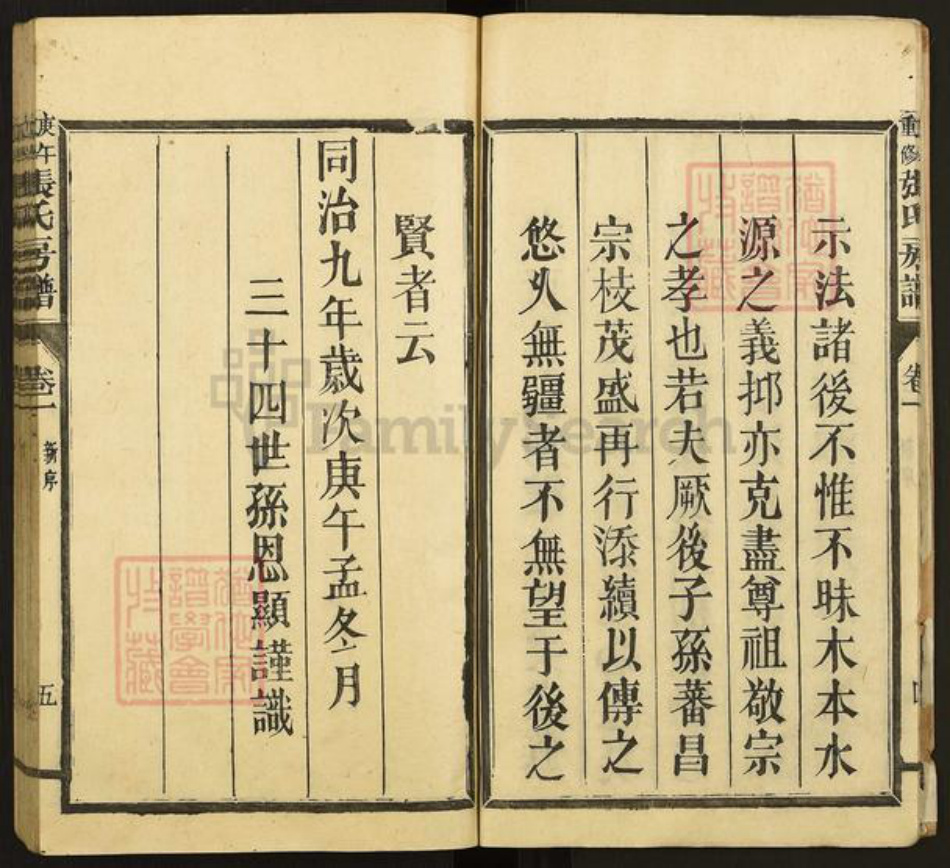 示法諸後不惟不昧木本水
源之義抑亦克盡尊祖敬宗
之孝也若夫厥後子孫蕃昌
宗枝茂盛再行添續以傳之
悠久無疆者不無望于後之
賢者云
同治九年歲次庚午孟冬月
三十四世孫恩顯謹識
庚午張氏房譜
卷一
新序
五
重修張氏房譜
卷一
FamilySearch